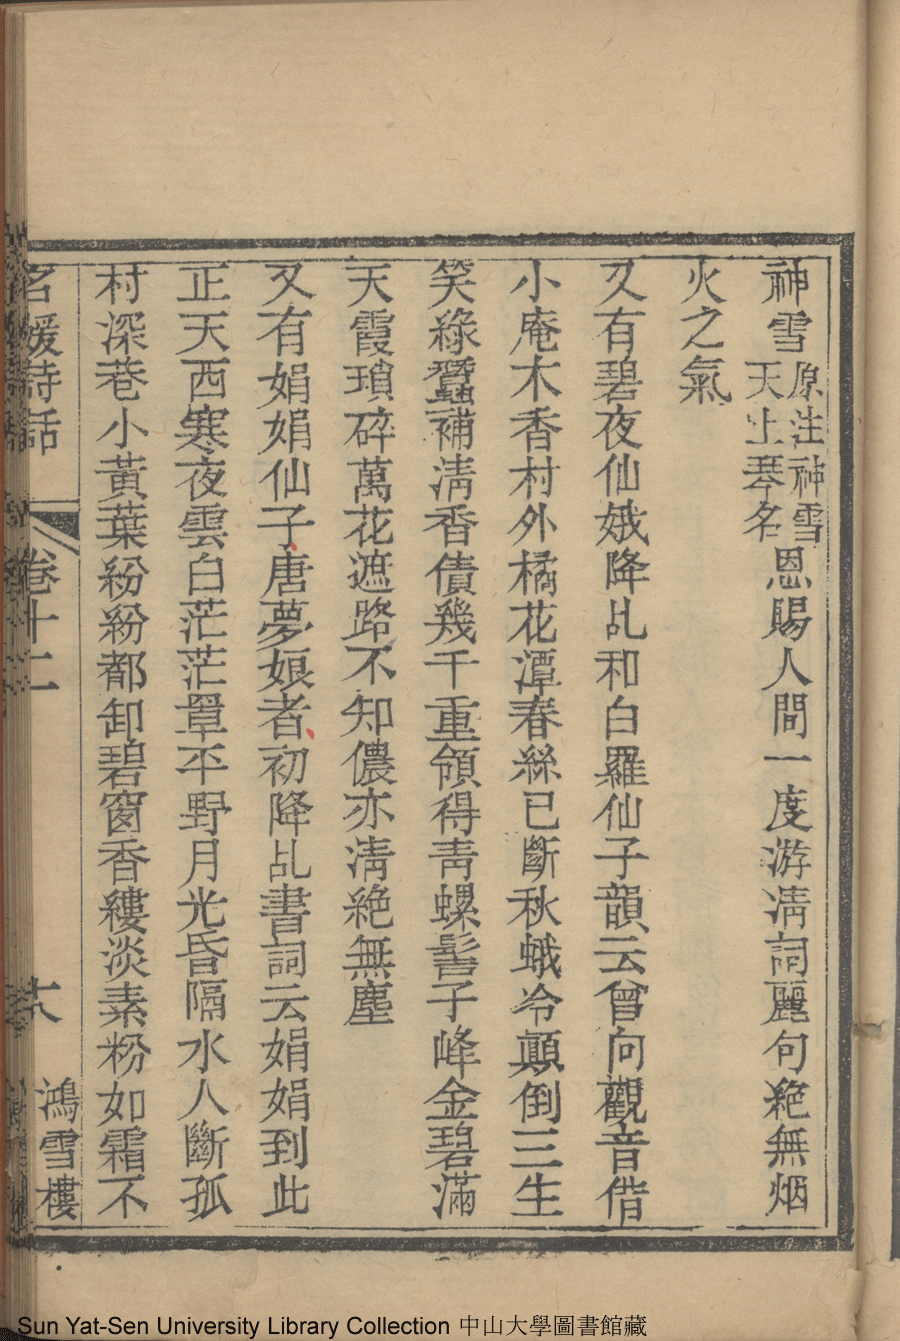 神雪原注神雪天上琴名恩賜人間一度游淸詞麗句絶無烟
火之氣
又有碧夜仙娥降乩和白羅仙子韻云曾向觀音借
小庵木香村外橘花潭春絲已斷秋蛾冷顚倒三生
笑綠蠶補淸香債幾千重領得靑螺髻子峰金碧滿
天霞瑣碎萬花遮路不知儂亦淸絶無塵
又有娟娟仙子唐夢娘者初降乩書詞云娟娟到此
正天西寒夜雲白茫茫罩平野月光昏隔水人斷孤
村深巷小黃葉紛紛都卸碧窗香縷淡素粉如霜不
名媛詩話 卷十二 大 鴻雪樓
Sun Yat-Sen University Library Collection 中山大學圖書館藏